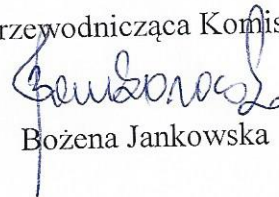 rzewodnicząca Komis
Bożena Jankowska